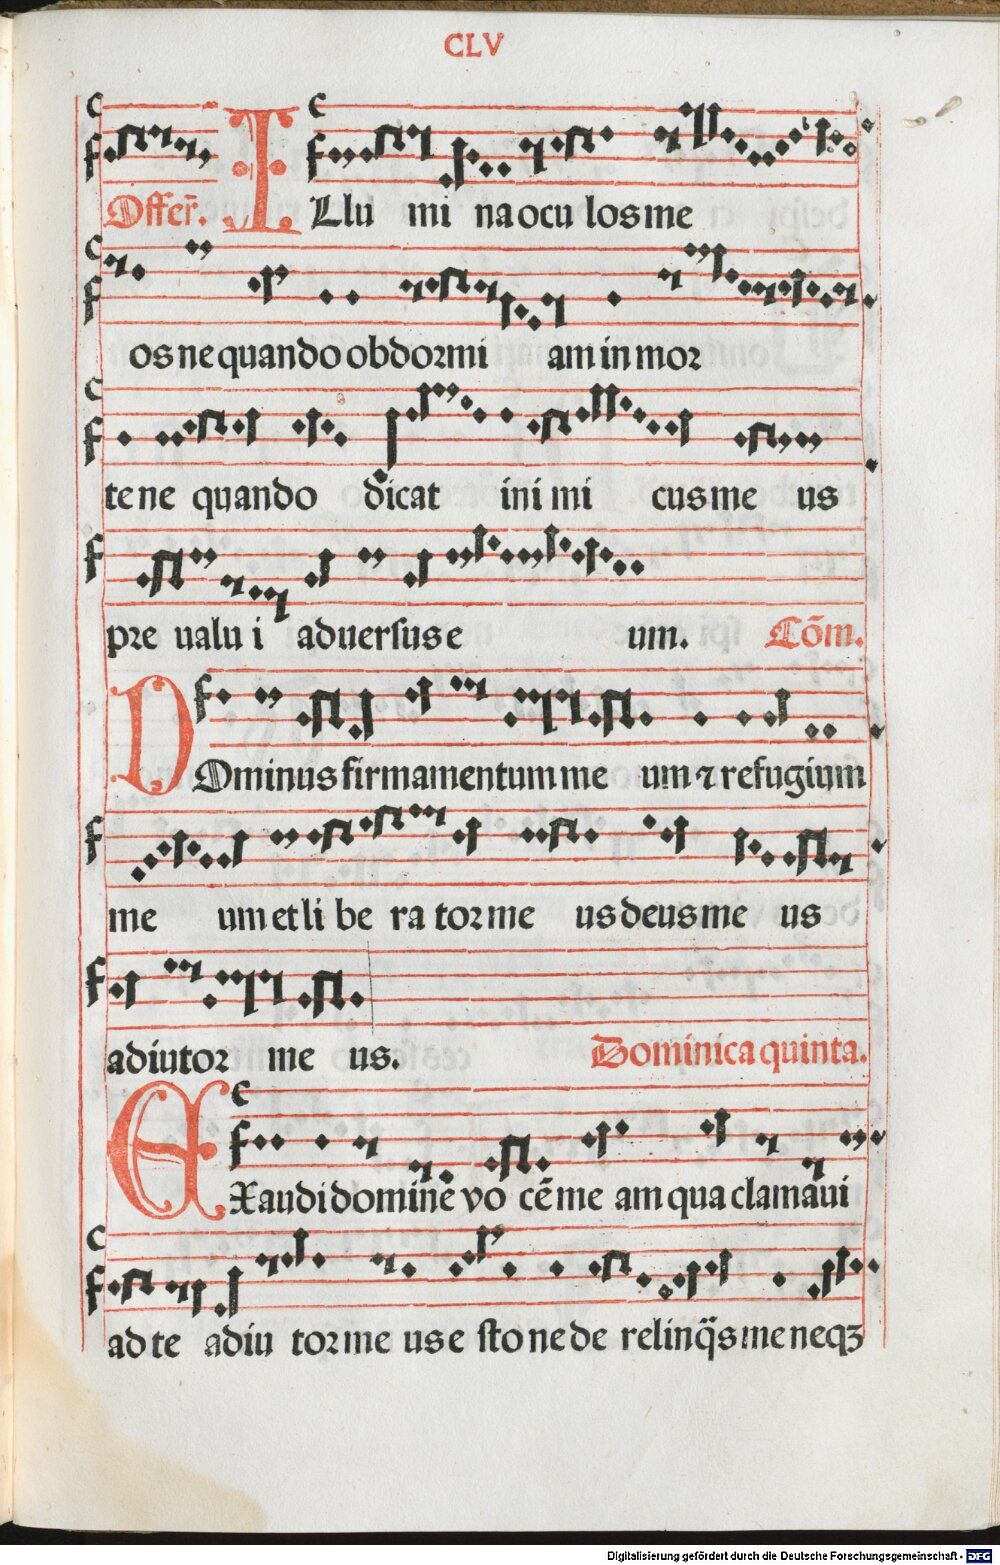 CLV
Offer̄. ILlu mi na ocu los me
os ne quando obdormi am in mor
te ne quando dicat ini mi cus me us
pre ualu i aduersus e um. Cōm.
DOminus firmamentum me um ⁊ refugium
me um et li be ra tor me us deus me us
adiutor me us. Dominica quinta.
EXaudi domine vo cē me am qua clamaui
ad te adiu tor me us e sto ne de relinq̄s me neqȝ
Digitalisierung gefördert durch die Deutsche Forschungsgemeinschaft - DFG